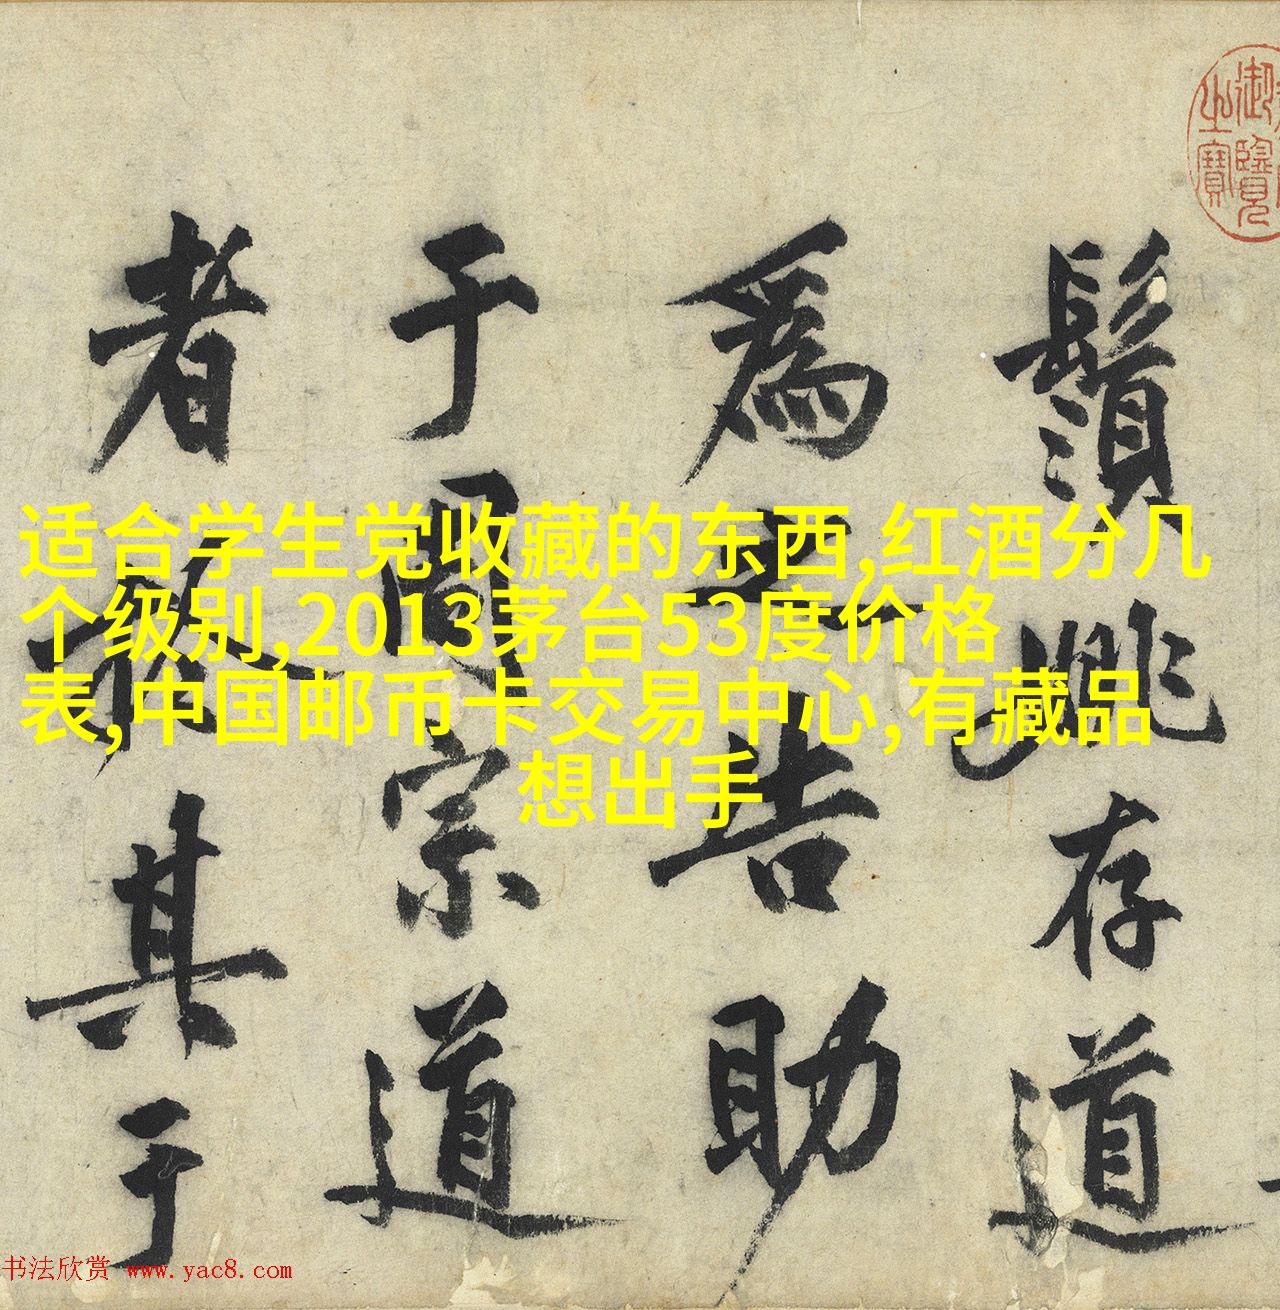 御覽
之寶
鬚姚存道
為之告助
于周宗道
者於其于
适合学生党收藏的东西,红酒分几
个级别,2013茅台53度价格
表,中国邮币卡交易中心,有藏品
想出手
书法欣赏 www.yac8.com